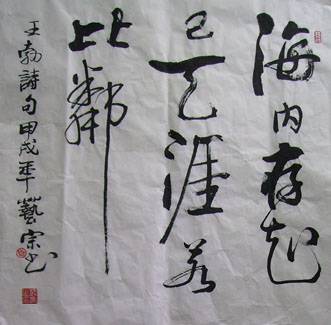 海内存知
己天涯若
比鄰
王勃詩句甲戌年藝宗书